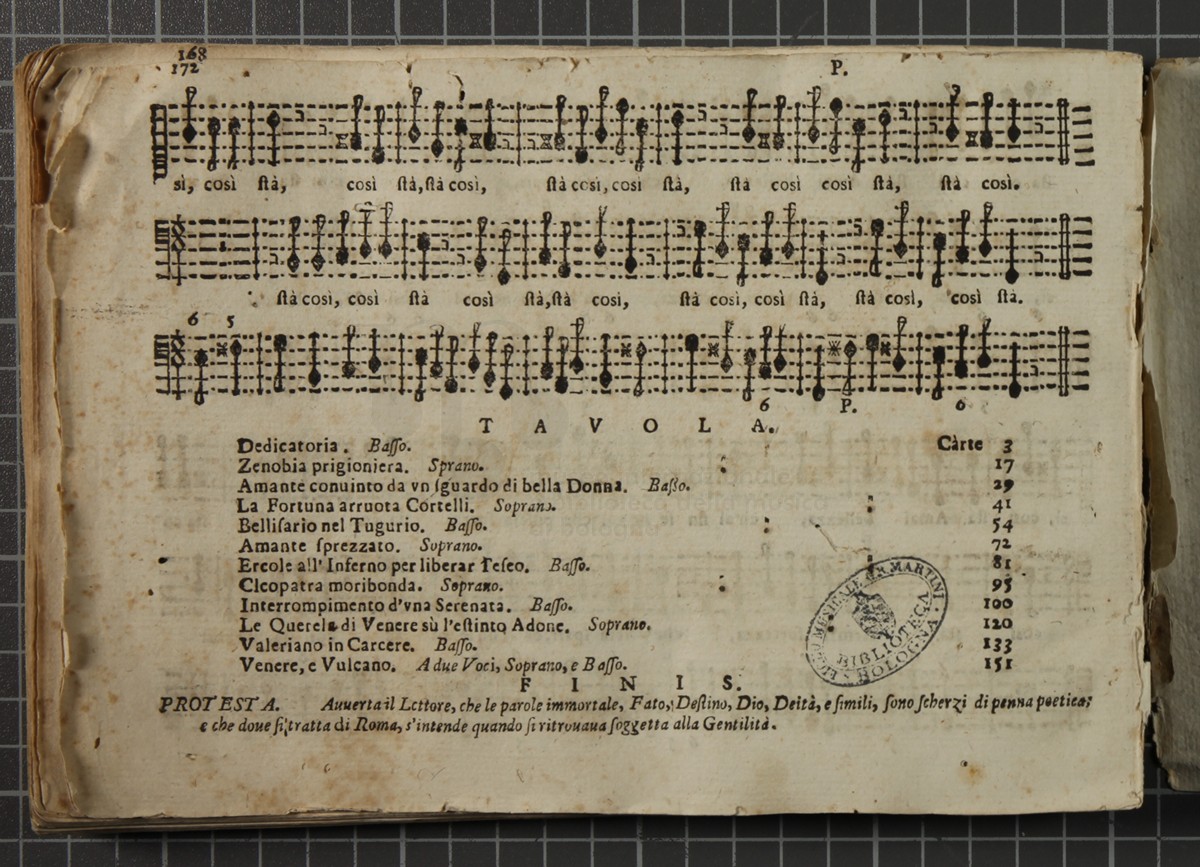 168
172 P.
sì, così ſtà, così ſtà, ſtà così, ſtà così, così ſtà, ſtà così così ſtà, ſtà così.
ſtà così, così ſtà così ſtà, ſtà così, ſtà così, così ſtà, ſtà così, così ſtà.
6 5
6 P. 6
TAVOLA.
Dedicatoria. Baſſo. Càrte 3
Zenobia prigioniera. Sprano. 17
Amante conuinto da vn ſguardo di bella Donna. Baſſo. 29
La Fortuna arruota Cortelli. Soprano. 41
Belliſario nel Tugurio. Baſſo. 54
Amante ſprezzato. Soprano. 72
Ercole all' Inferno per liberar Teſeo. Baſſo. 81
Cleopatra moribonda. Soprano. 95
Interrompimento d'vna Serenata. Baſſo. 100
Le Querele di Venere sù l'eſtinto Adone. Soprano. 120
Valeriano in Carcere. Baſſo. 133
Venere, e Vulcano. A due Voci, Soprano, e Baſſo. 151
MUSICALE G.B. MARTINI
BIBLIOTECA
BOLOGNA
FINIS.
PROTESTA. Auuerta il Lettore, che le parole immortale, Fato, Deſtino, Dio, Deità, e ſimili, ſono ſcherzi di penna poetica;
e che doue ſi tratta di Roma, s'intende quando ſi ritrouaua ſoggetta alla Gentilità.